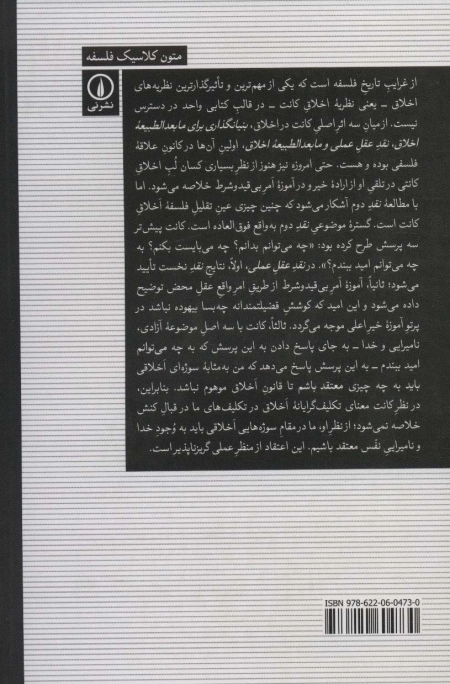 متون کلاسیک فلسفه
نشرنی
از غرایبِ تاریخ فلسفه است که یکی از مهم‌ترین و تأثیرگذارترین نظریه‌های
اخلاق – یعنی نظریهٔ اخلاقِ کانت – در قالب کتابی واحد در دسترس
نیست. از میانِ سه اثر اصلیِ کانت در اخلاق، بنیانگذاری برای مابعدالطبیعهٔ
اخلاق، نقدِ عقلِ عملی و مابعدالطبیعهٔ اخلاق، اولینِ آن‌ها در کانونِ علاقهٔ
فلسفی بوده و هست. حتی امروزه نیز هنوز از نظر بسیاری کسان لُبِ اخلاقِ
کانتی در تلقیِ او از ارادهٔ خیر و در آموزهٔ امرِ بی‌قیدوشرط خلاصه می‌شود. اما
با مطالعهٔ نقدِ دوم آشکار می‌شود که چنین چیزی عینِ تقلیلِ فلسفهٔ اخلاقِ
کانت است. گسترهٔ موضوعیِ نقدِ دوم به‌واقع فوق‌العاده است. کانت پیش‌تر
سه پرسش طرح کرده بود: «چه می‌توانم بدانم؟ چه می‌بایست بکنم؟ به
چه می‌توانم امید ببندم؟». در نقدِ عقلِ عملی، اولاً، نتایجِ نقدِ نخست تأیید
می‌شود؛ ثانیاً، آموزهٔ امرِ بی‌قیدوشرط از طریقِ امرِ واقعِ عقلِ محض توضیح
داده می‌شود و این امید که کوششِ فضیلتمندانه چه‌بسا بیهوده نباشد در
پرتوِ آموزهٔ خیرِ اعلی موجه می‌گردد. ثالثاً، کانت با سه اصلِ موضوعهٔ آزادی،
نامیرایی و خدا – به جای پاسخ دادن به این پرسش که به چه می‌توانم
امید ببندم – به این پرسش پاسخ می‌دهد که من به‌مثابهٔ سوژه‌ای اخلاقی
باید به چه چیزی معتقد باشم تا قانونِ اخلاق موهوم نباشد. بنابراین،
در نظرِ کانت معنای تکلیف‌گرایانهٔ اخلاق در تکلیف‌های ما در قبالِ کنش
خلاصه نمی‌شود؛ از نظر او، ما در مقامِ سوژه‌هایی اخلاقی باید به وُجودِ خدا
و نامیراییِ نفْس معتقد باشیم. این اعتقاد از منظرِ عملی گریزناپذیر است.
ISBN 978-622-06-0473-0